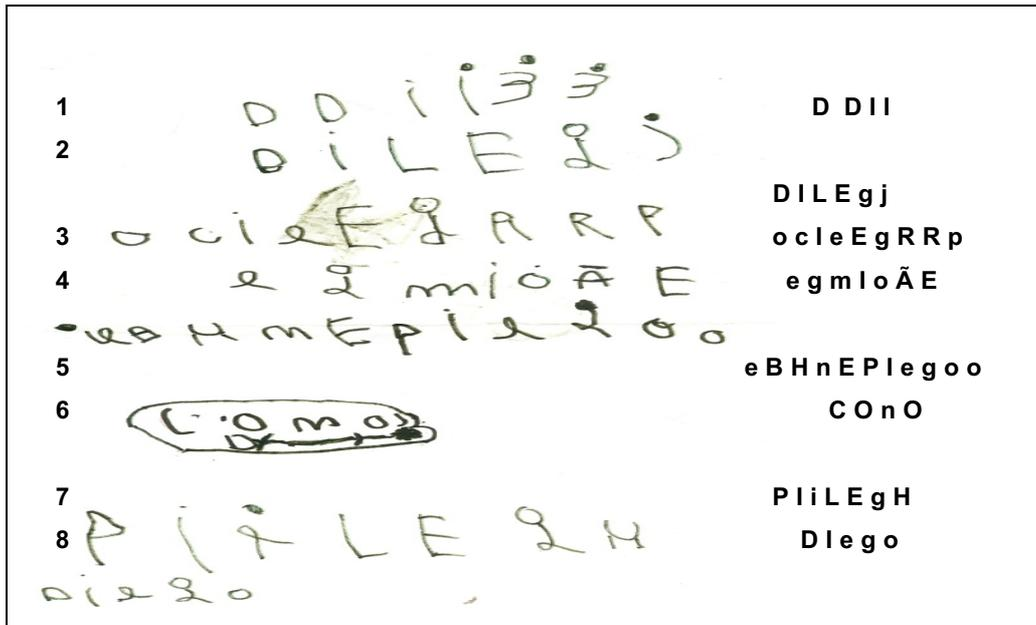 1 D D i i 3 3 D DII
2 D i L E g j
DILEgj
3 o c i e E g R R P ocIeEgRRp
4 e g m i o Ã E egmIoÃE
e B H m E p i e g o o
5 eBHnEPIegoo
6 C O m O COnO
7 PIiLEgH
8 P i i L E g H DIego
D i e g o